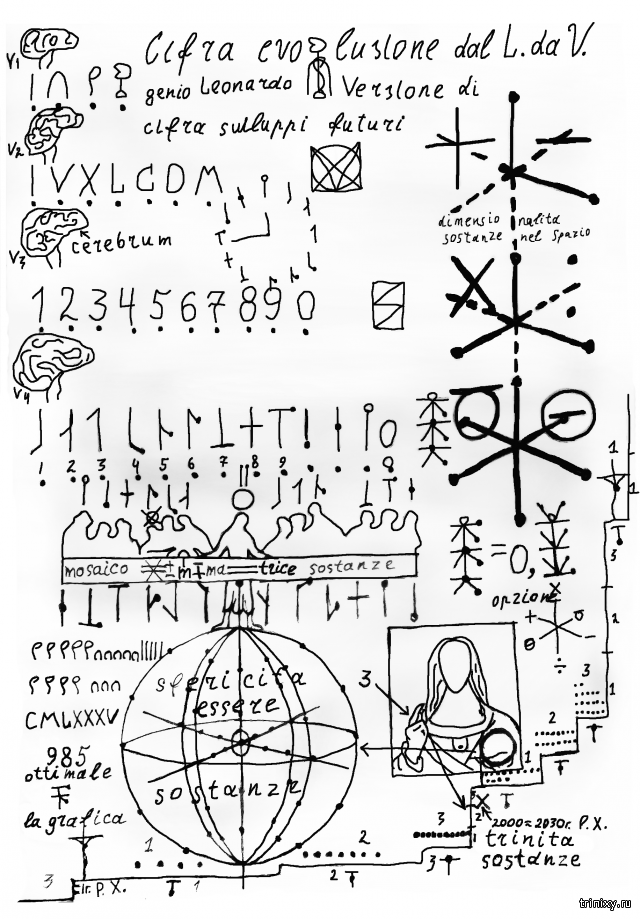 Cifra evo lusione dal L. da V.
V1
genio Leonardo Versione di
cifra sulluppi futuri
V2
I V X L C D M
dimensio nalita
sostanze nel spazio
cerebrum
V3
1 2 3 4 5 6 7 8 9 0
V4
1 2 3 4 5 6 7 8 9 0
mosaico matrice sostanze
= 0,
opzione
sfericita
essere
CMLXXXV
985
ottimale
sostanze
la grafica
3
1
2
3
2000=2030г. P. X.
trinita
sostanze
3 Iг. P. X. 1 2 3
trinixy.ru